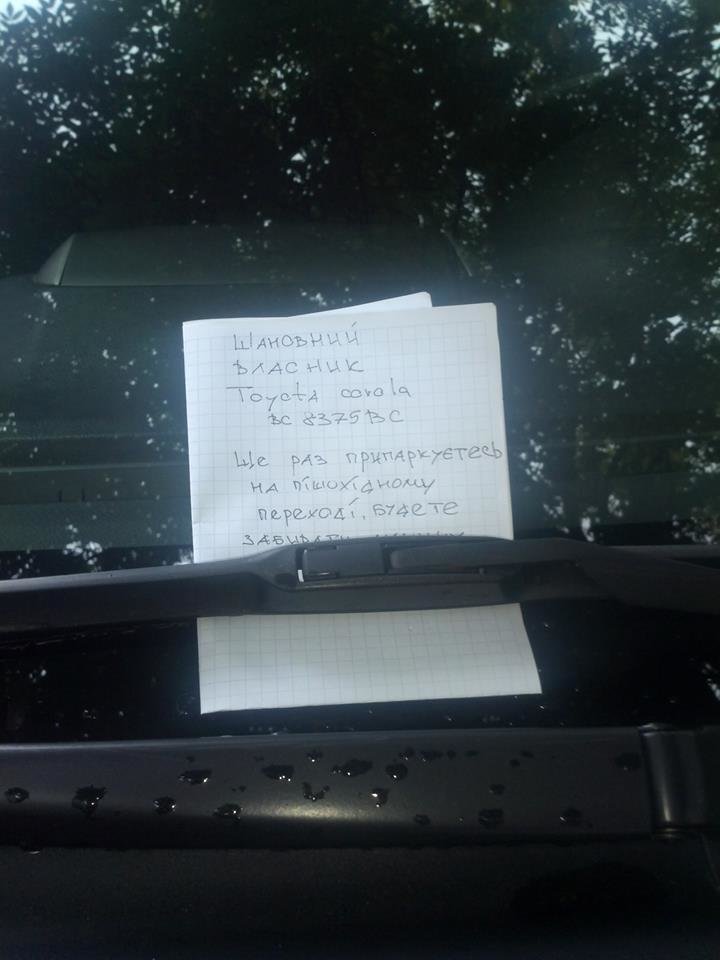 Шановний
власник
Toyota corola
ВС 8375ВС
Ще раз припаркуєтесь
на пішохідному
переході, будете
забирати